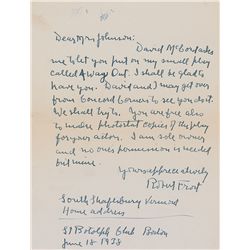 Dear Mrs Johnson:
David McCord asks
me to let you put on my small play
called A Way Out. I shall be glad to
have you. David and I may get over
from Concord Corners to see you do it.
We shall try to. You are free also
to make photostat copies of the play
for your actors. I am sole owner
and no ones permission is needed
but mine.
Yours appreciatively
Robert Frost
South Shaftsbury Vermont
Home address
St Botolph Club Boston
June 18 1938